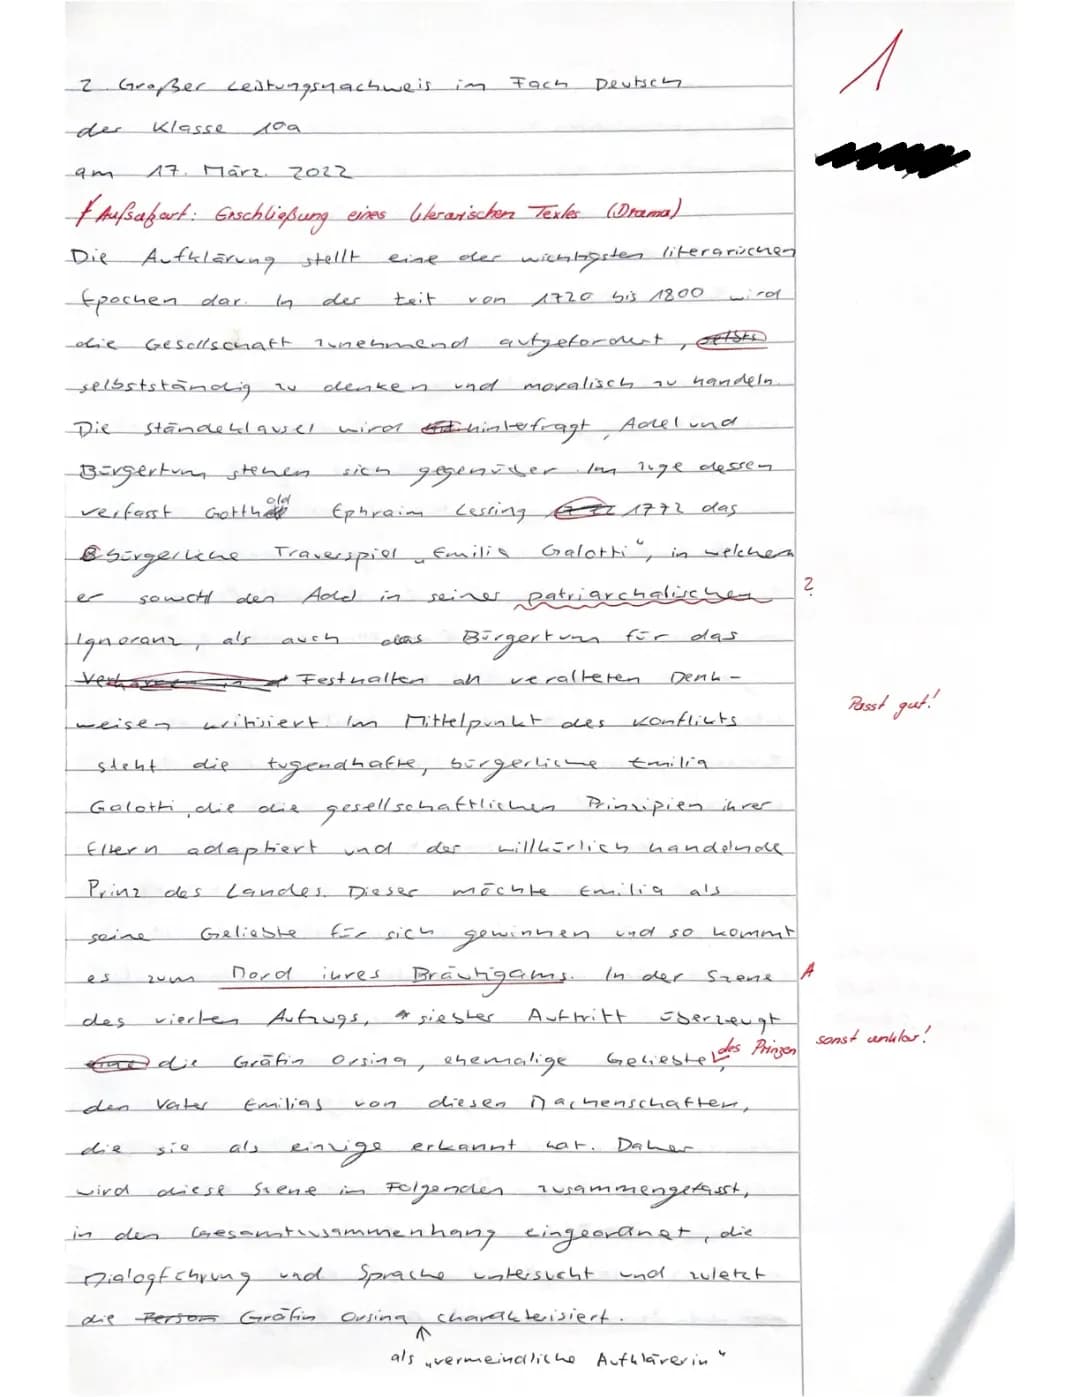 1
2. Großer Leistungsnachweis im Fach Deutsch
der Klasse 10a
am 17. März. 2022
Aufsatzart: Erschließung eines literarischen Textes (Drama)
Die Aufklärung stellt eine der wichtigsten literarischen
Epochen dar. In der Zeit von 1720 bis 1800 wird
die Gesellschaft zunehmend aufgefordert, selbst
selbstständig zu denken und moralisch zu handeln.
Die Ständeklausel wird hinterfragt, Adel und
Bürgertum stehen sich gegenüber. Im Zuge dessen
verfasst Gotthold Ephraim Lessing 1772 das
bürgerliche Trauerspiel „Emilia Galotti“, in welchem
er sowohl den Adel in seiner patriarchalischen ?
Ignoranz, als auch das Bürgertum für das
Festhalten an veralteten Denk-
weisen kritisiert. Im Mittelpunkt des Konflikts Passt gut!
steht die tugendhafte, bürgerliche Emilia
Galotti, die die gesellschaftlichen Prinzipien ihrer
Eltern adaptiert und der willkürlich handelnde
Prinz des Landes. Dieser möchte Emilia als
seine Geliebte für sich gewinnen und so kommt
es zum Mord ihres Bräutigams. In der Szene A
des vierten Aufzugs, siebter Auftritt überzeugt
die Gräfin Orsina, ehemalige Geliebte des Prinzen, sonst unklar!
den Vater Emilias von diesen Machenschaften,
die sie als einzige erkannt hat. Daher
wird diese Szene im Folgenden zusammengefasst,
in den Gesamtzusammenhang eingeordnet, die
Dialogführung und Sprache untersucht und zuletzt
die Person Gräfin Orsina charakterisiert.
als „vermeindliche Aufklärerin“